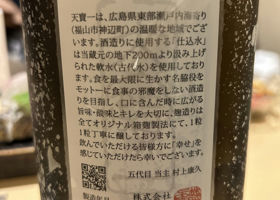 天寶一は、広島県東部瀬戸内海寄り
(福山市神辺町)の温暖な地域でござ
います。酒造りに使用する「仕込水」
は当蔵元の地下200mより汲み上げ
られた軟水(古代水)を使用しており
ます。食を最大限に生かす名脇役を
モットーに食事の邪魔をしない酒造
りを目指し、口に含んだ時に広がる
旨味・酸味とキレを大切に、麹造りは
全てオリジナル箱麹製法にて、1粒
1粒丁寧に醸しております。
飲んでいただける皆様方に「幸せ」を
感じていただけたら幸いでございます。
五代目 当主 村上康久
製造年月
株式会社